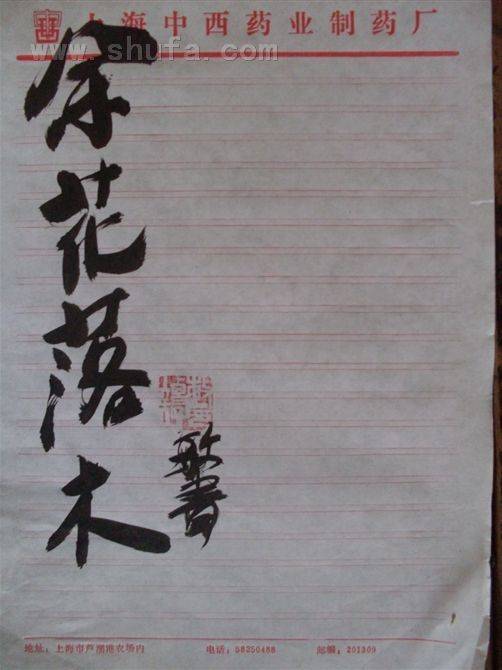 上海中西药业制药厂
www.shufa.com
余花落木
书
地址：上海市芦潮港农场内 电话：58250488 邮编：201309